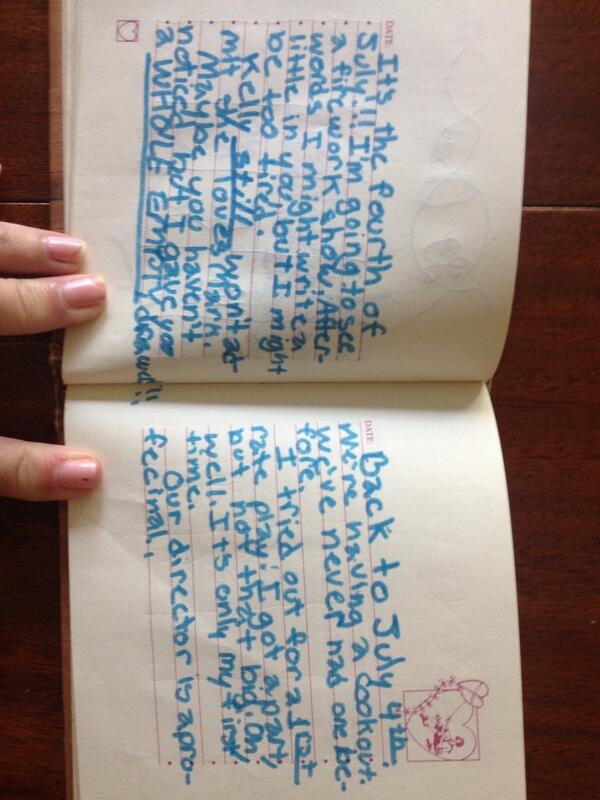 DATE:
It's the fourth of
July!!! I'm going to see
a firework show! After-
words I might write a
little in you, but I might
be too tired.
Kelly still won't ad
mit she loves Mark.
Maybe you haven't
noticed but I gave you
a WHOLE EMPTY drawd!!
DATE:
Back to July 4th.
We're having a cookout.
We've never had one be-
fore.
I tried out for a 1st
rate play. I got a part,
but not that big. Oh
well. It's only my first
time.
Our director is a pro-
fecinal.